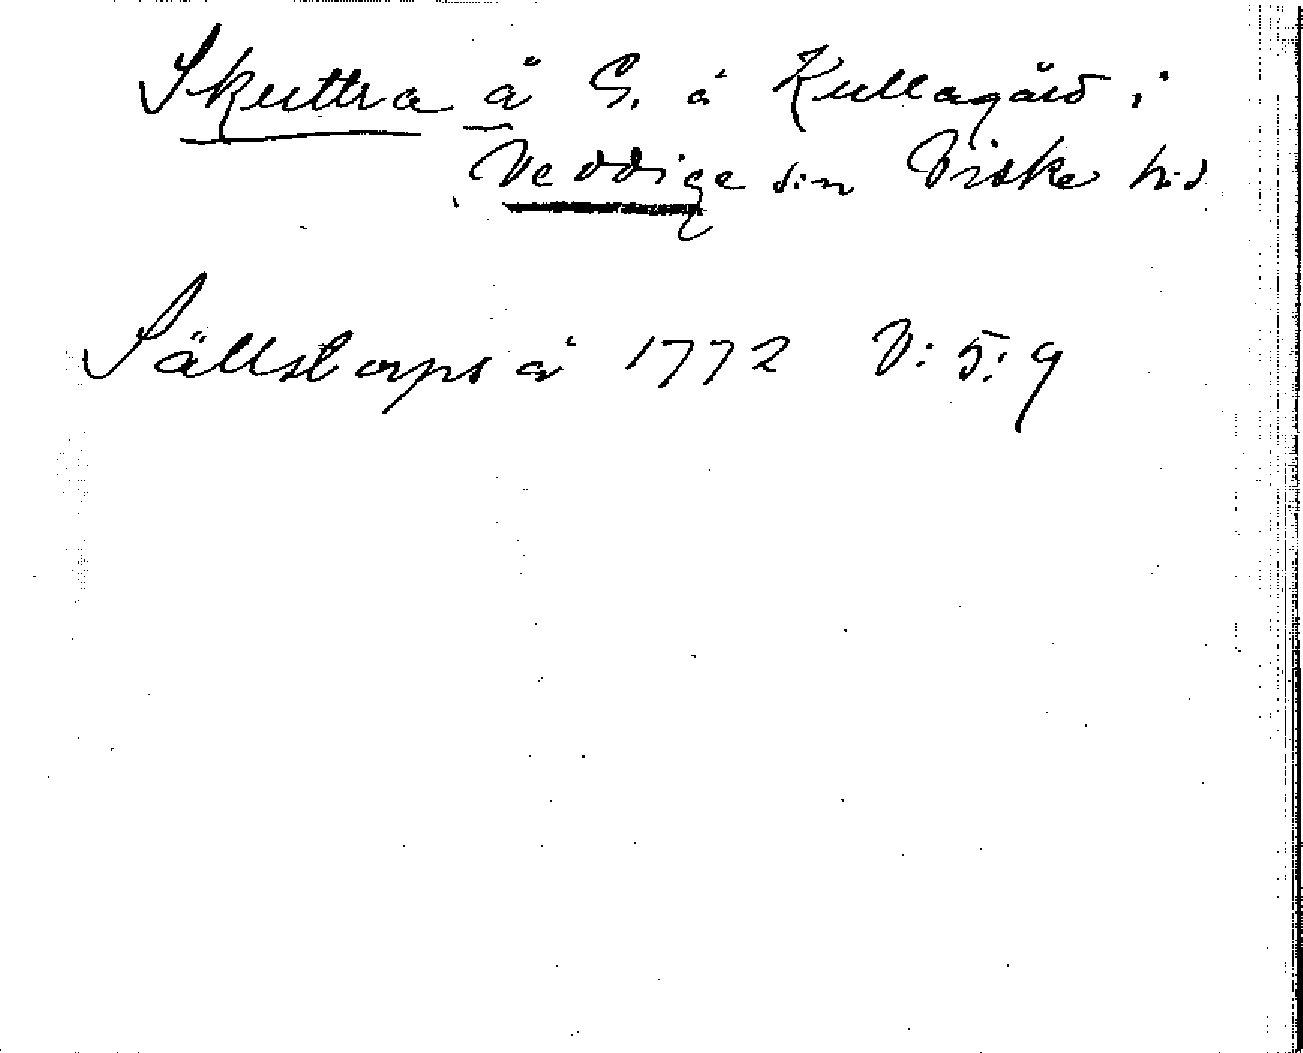 Skuttra å S. å Kullagård i
Veddige s:n Viske h:d
Sällstorps å 1772 V: 5: 9